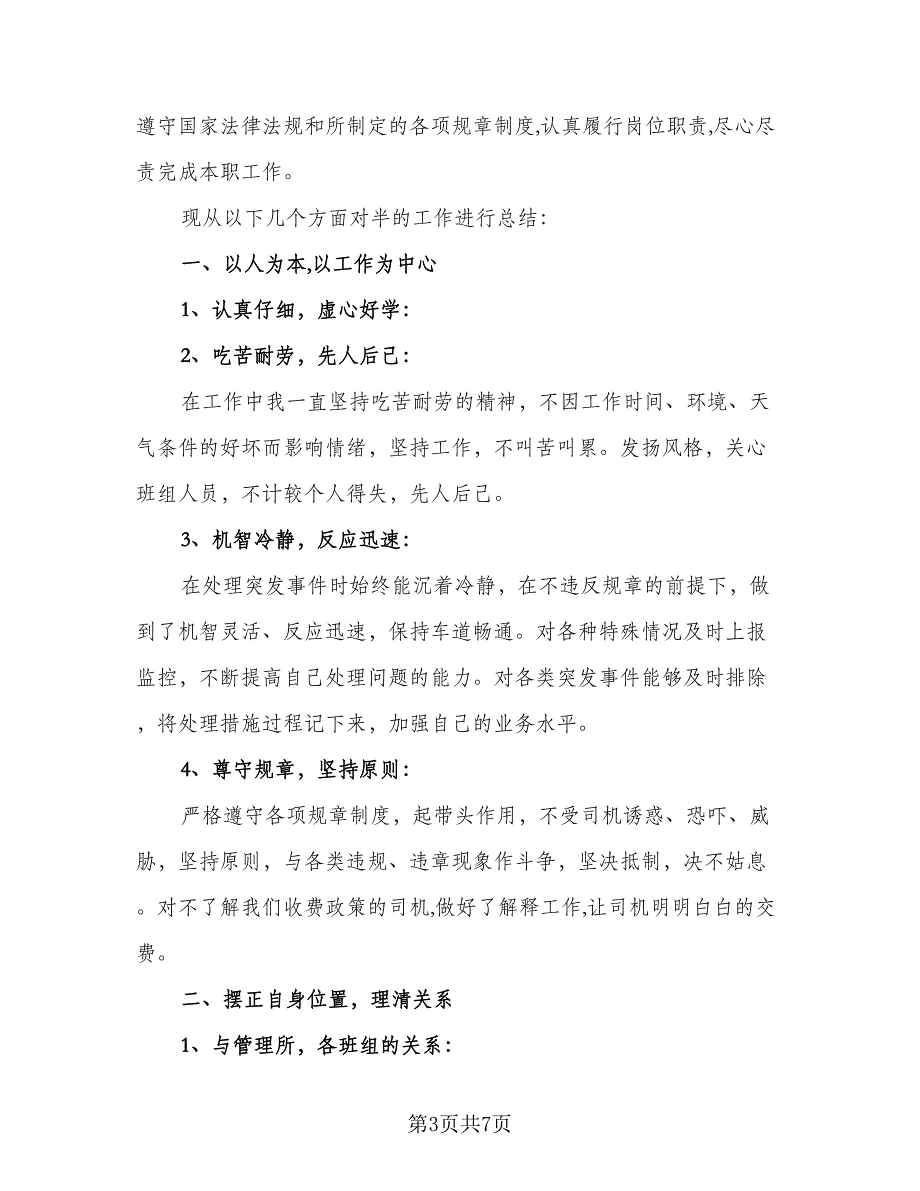 遵守国家法律法规和所制定的各项规章制度,认真履行岗位职责,尽心尽
责完成本职工作。
现从以下几个方面对半的工作进行总结：
一、以人为本,以工作为中心
1、认真仔细，虚心好学：
2、吃苦耐劳，先人后己：
在工作中我一直坚持吃苦耐劳的精神，不因工作时间、环境、天
气条件的好坏而影响情绪，坚持工作，不叫苦叫累。发扬风格，关心
班组人员，不计较个人得失，先人后己。
3、机智冷静，反应迅速：
在处理突发事件时始终能沉着冷静，在不违反规章的前提下，做
到了机智灵活、反应迅速，保持车道畅通。对各种特殊情况及时上报
监控，不断提高自己处理问题的能力。对各类突发事件能够及时排除
，将处理措施过程记下来，加强自己的业务水平。
4、尊守规章，坚持原则：
严格遵守各项规章制度，起带头作用，不受司机诱惑、恐吓、威
胁，坚持原则，与各类违规、违章现象作斗争，坚决抵制，决不姑息
。对不了解我们收费政策的司机,做好了解释工作,让司机明明白白的交
费。
二、摆正自身位置，理清关系
1、与管理所，各班组的关系：
第3页共7页